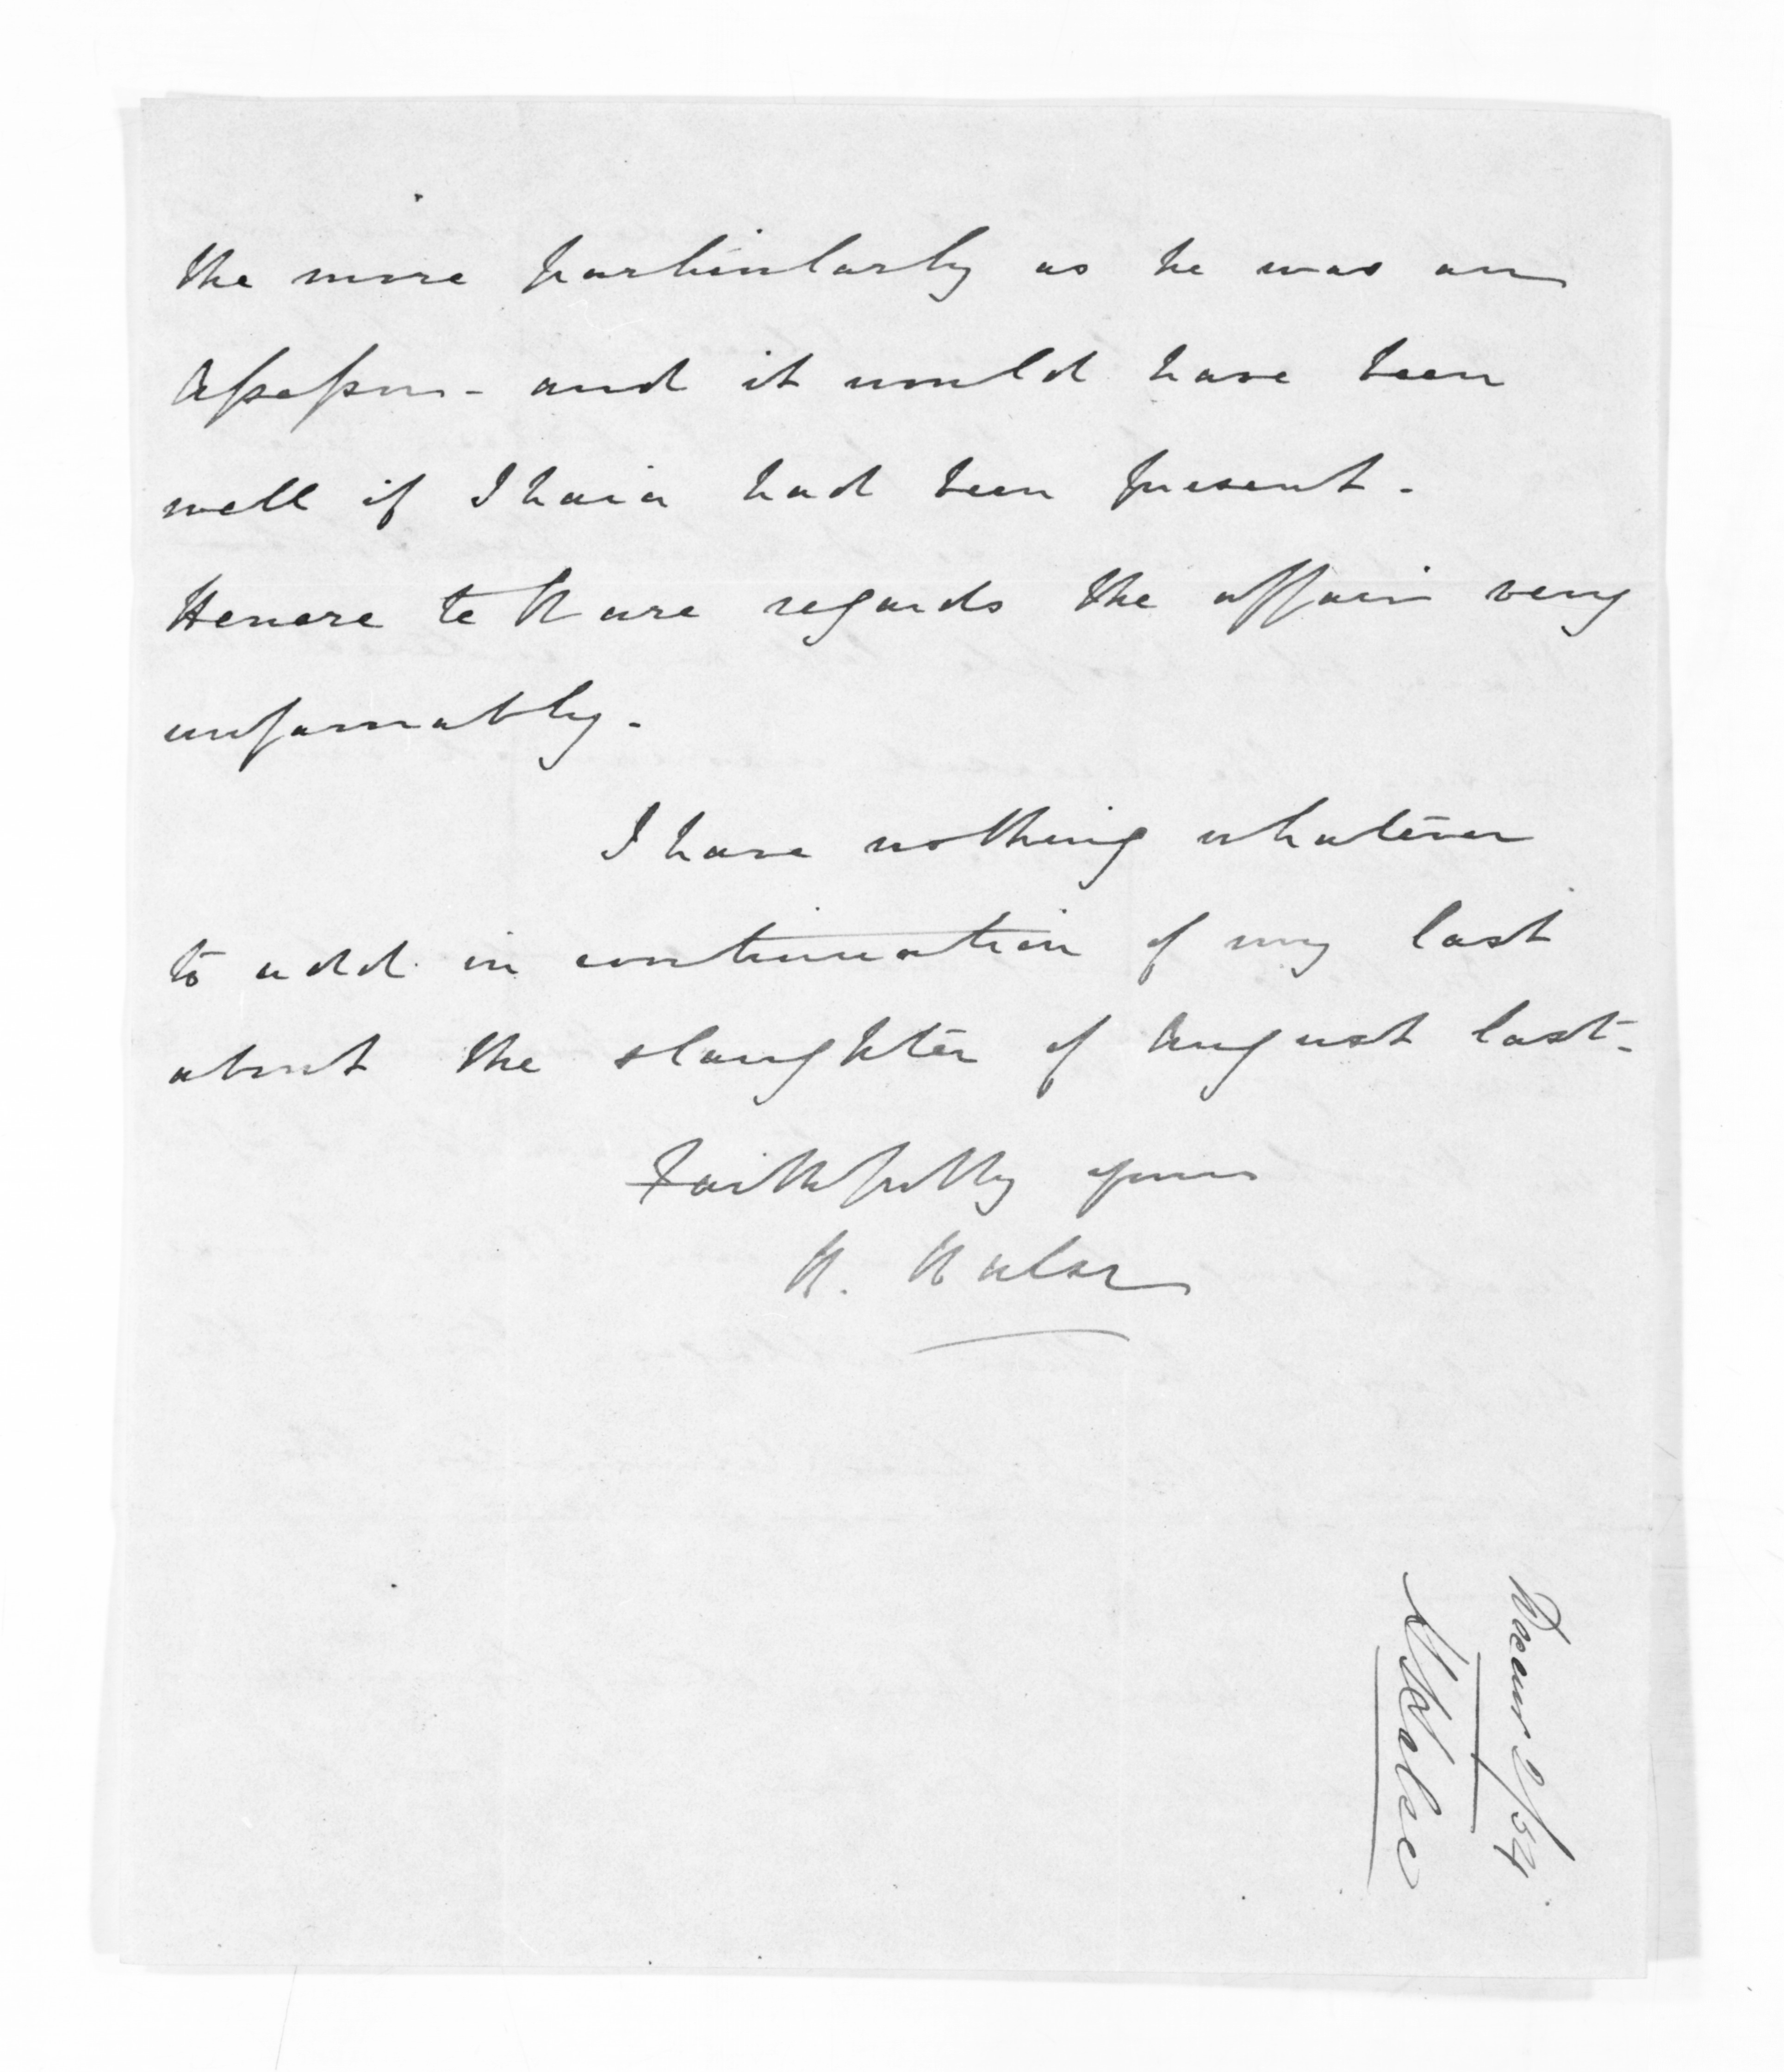 the more particularly as he was an
Assessor - and it would have been
well if Ihaia had been present.
Henere te Kare regards the affair very
unfavorably.
I have nothing whatever
to add in continuation of my last
about the slaughter of August last.
Faithfully yours
H. Halse
Decem 2/54
H Halse